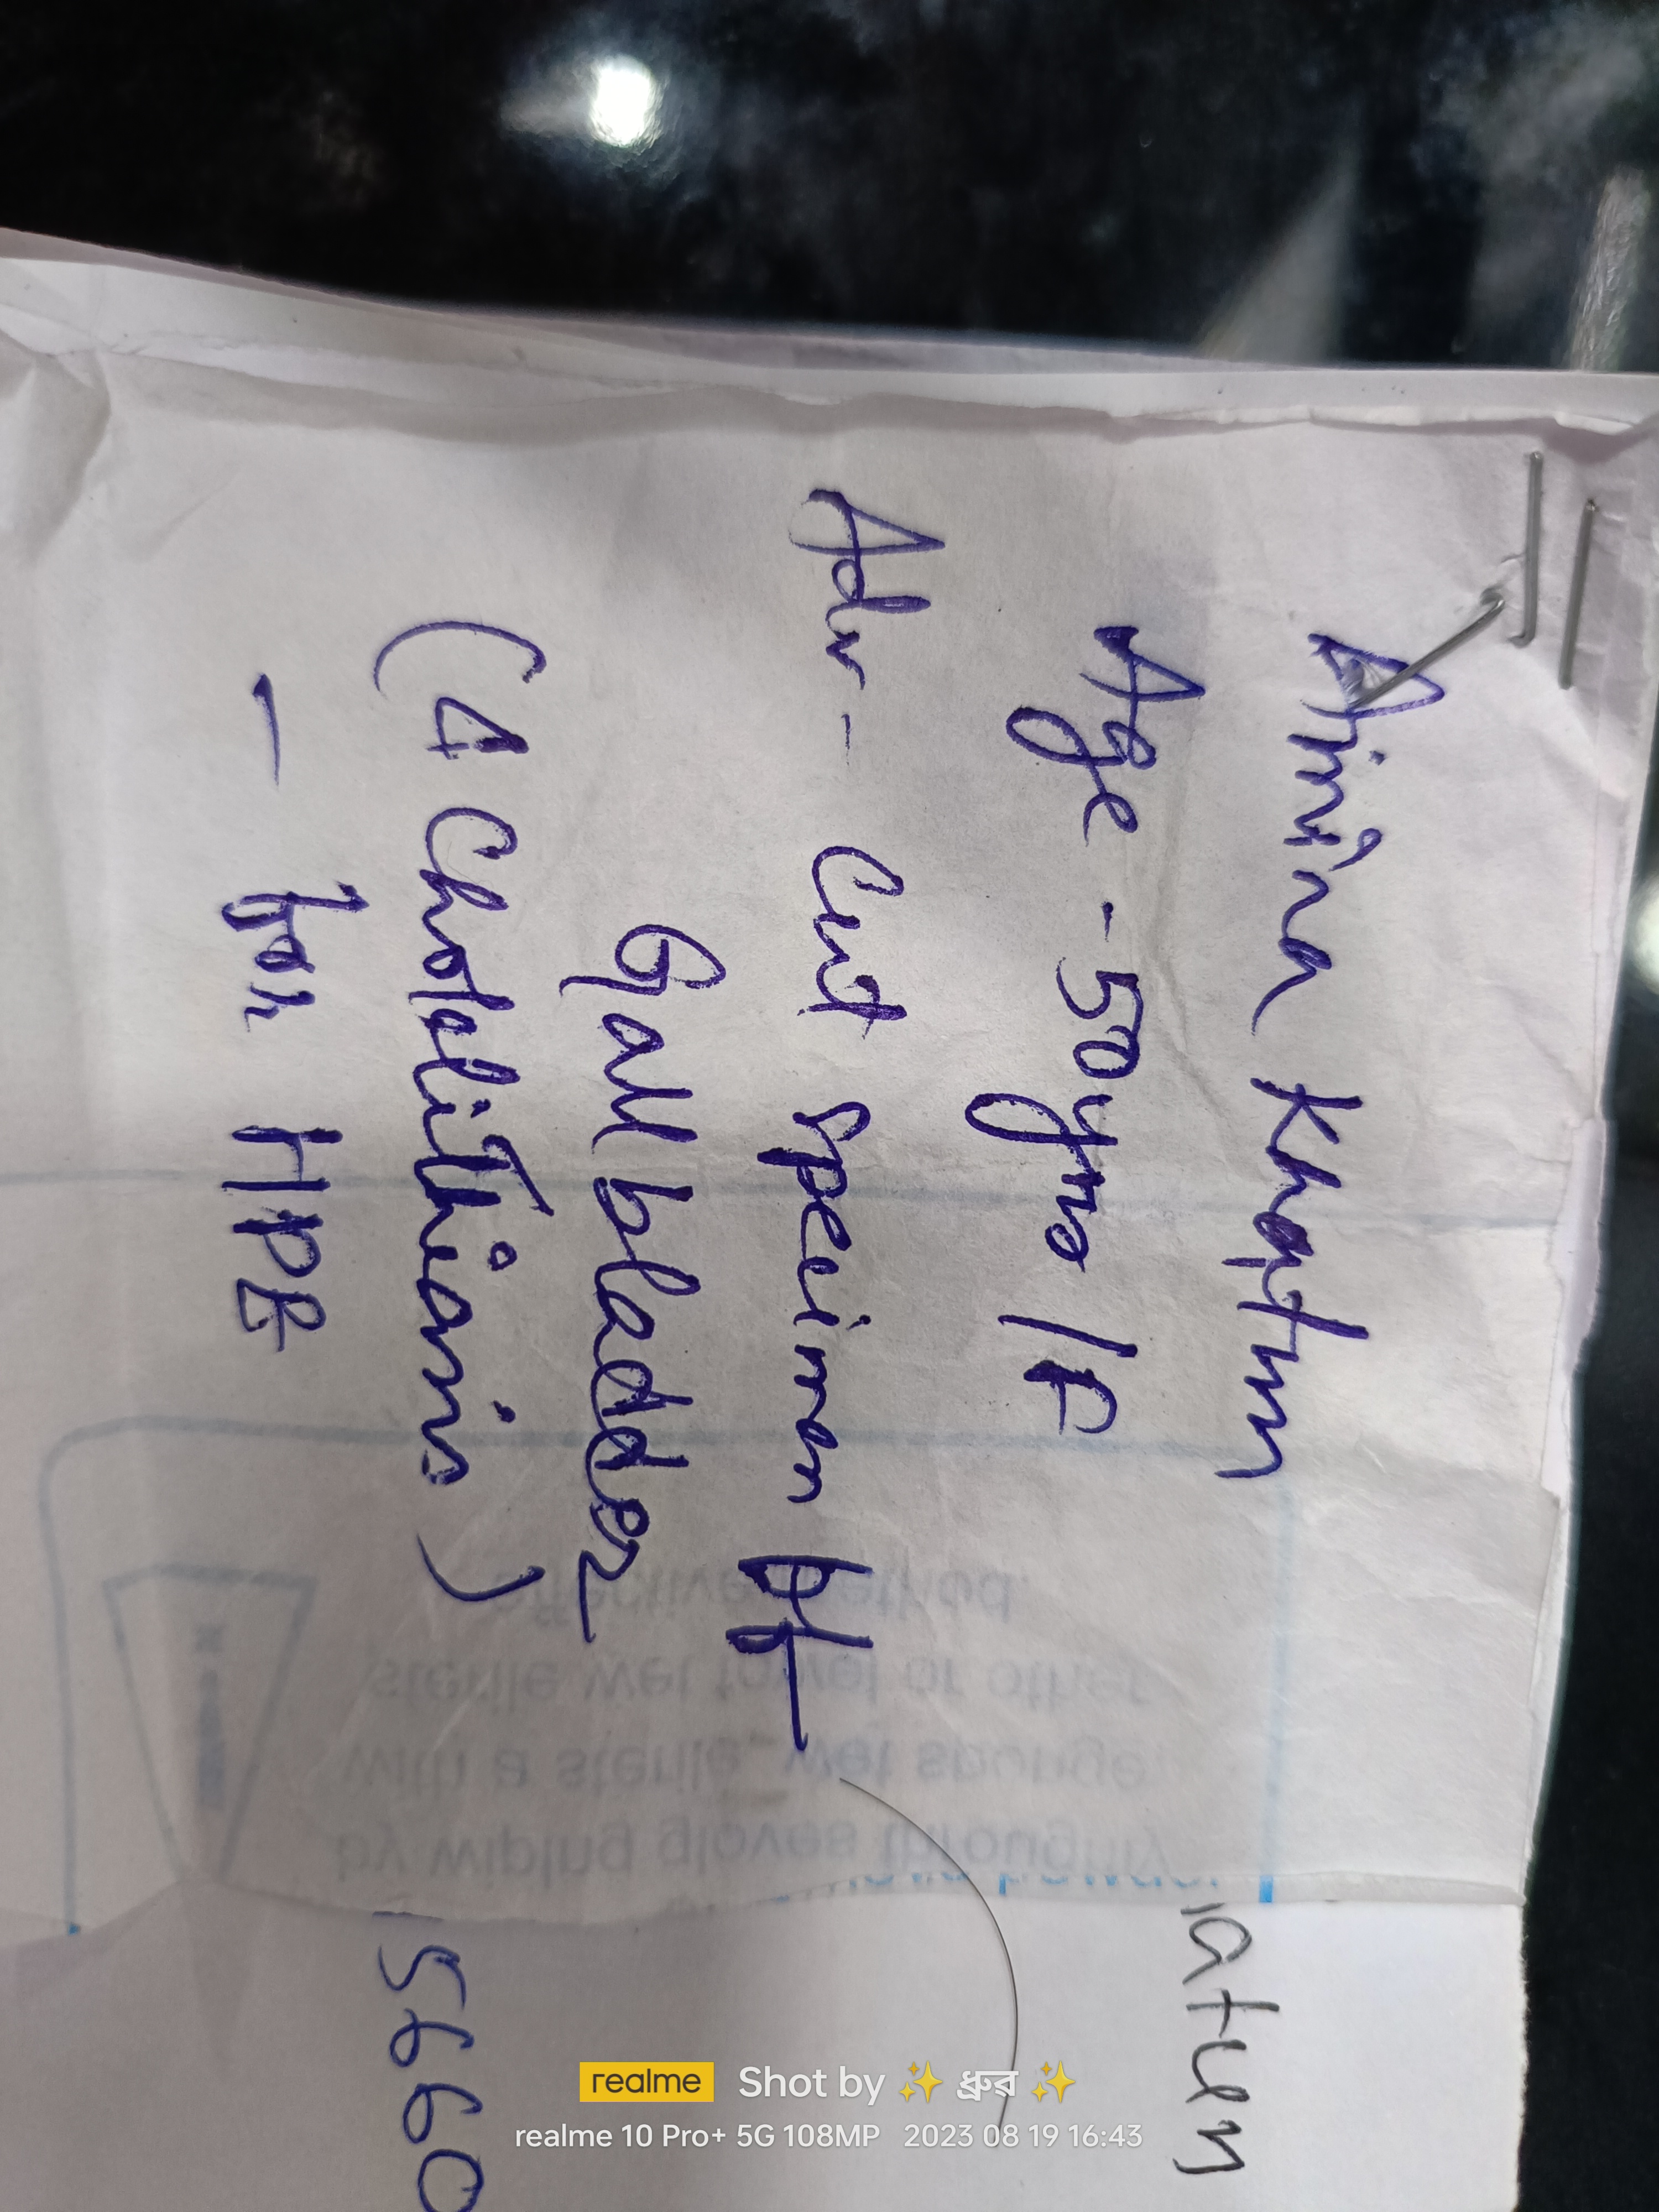 Amina Khatun
Age - 50 yrs / F
Adv - Cut specimen of
Gall bladder
(Δ Cholelithiasis)
- for HPE
by wiping gloves throughly
with a sterile wet sponge,
sterile wet towel or other
effective method.
atun
5660
realme Shot by ✨ ধ্রুব ✨
realme 10 Pro+ 5G 108MP 2023 08 19 16:43